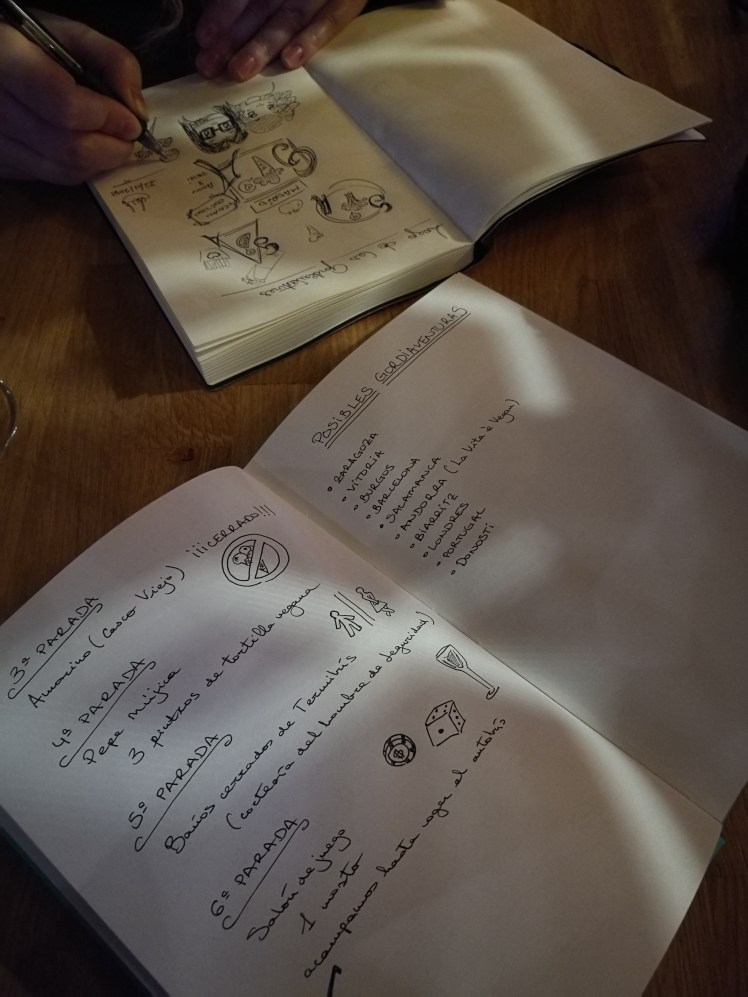 3ª PARADA
Amorino (Casco Viejo) ¡¡¡CERRADO!!!
4ª PARADA
Pepe
3 pintxos de tortilla vegana
5ª PARADA
Baños cerrados de Termibús
(cortesía del hombre de seguridad)
6ª PARADA
Salón de juego
1 mosto
acampamos hasta coger el autobús
POSIBLES GORDIAVENTURAS
• ZARAGOZA
• VITORIA
• BURGOS
• BARCELONA
• SALAMANCA
• ANDORRA (La Vita è Vegan)
• BIARRITZ
• LONDRES
• PORTUGAL
• DONOSTI
MADRID